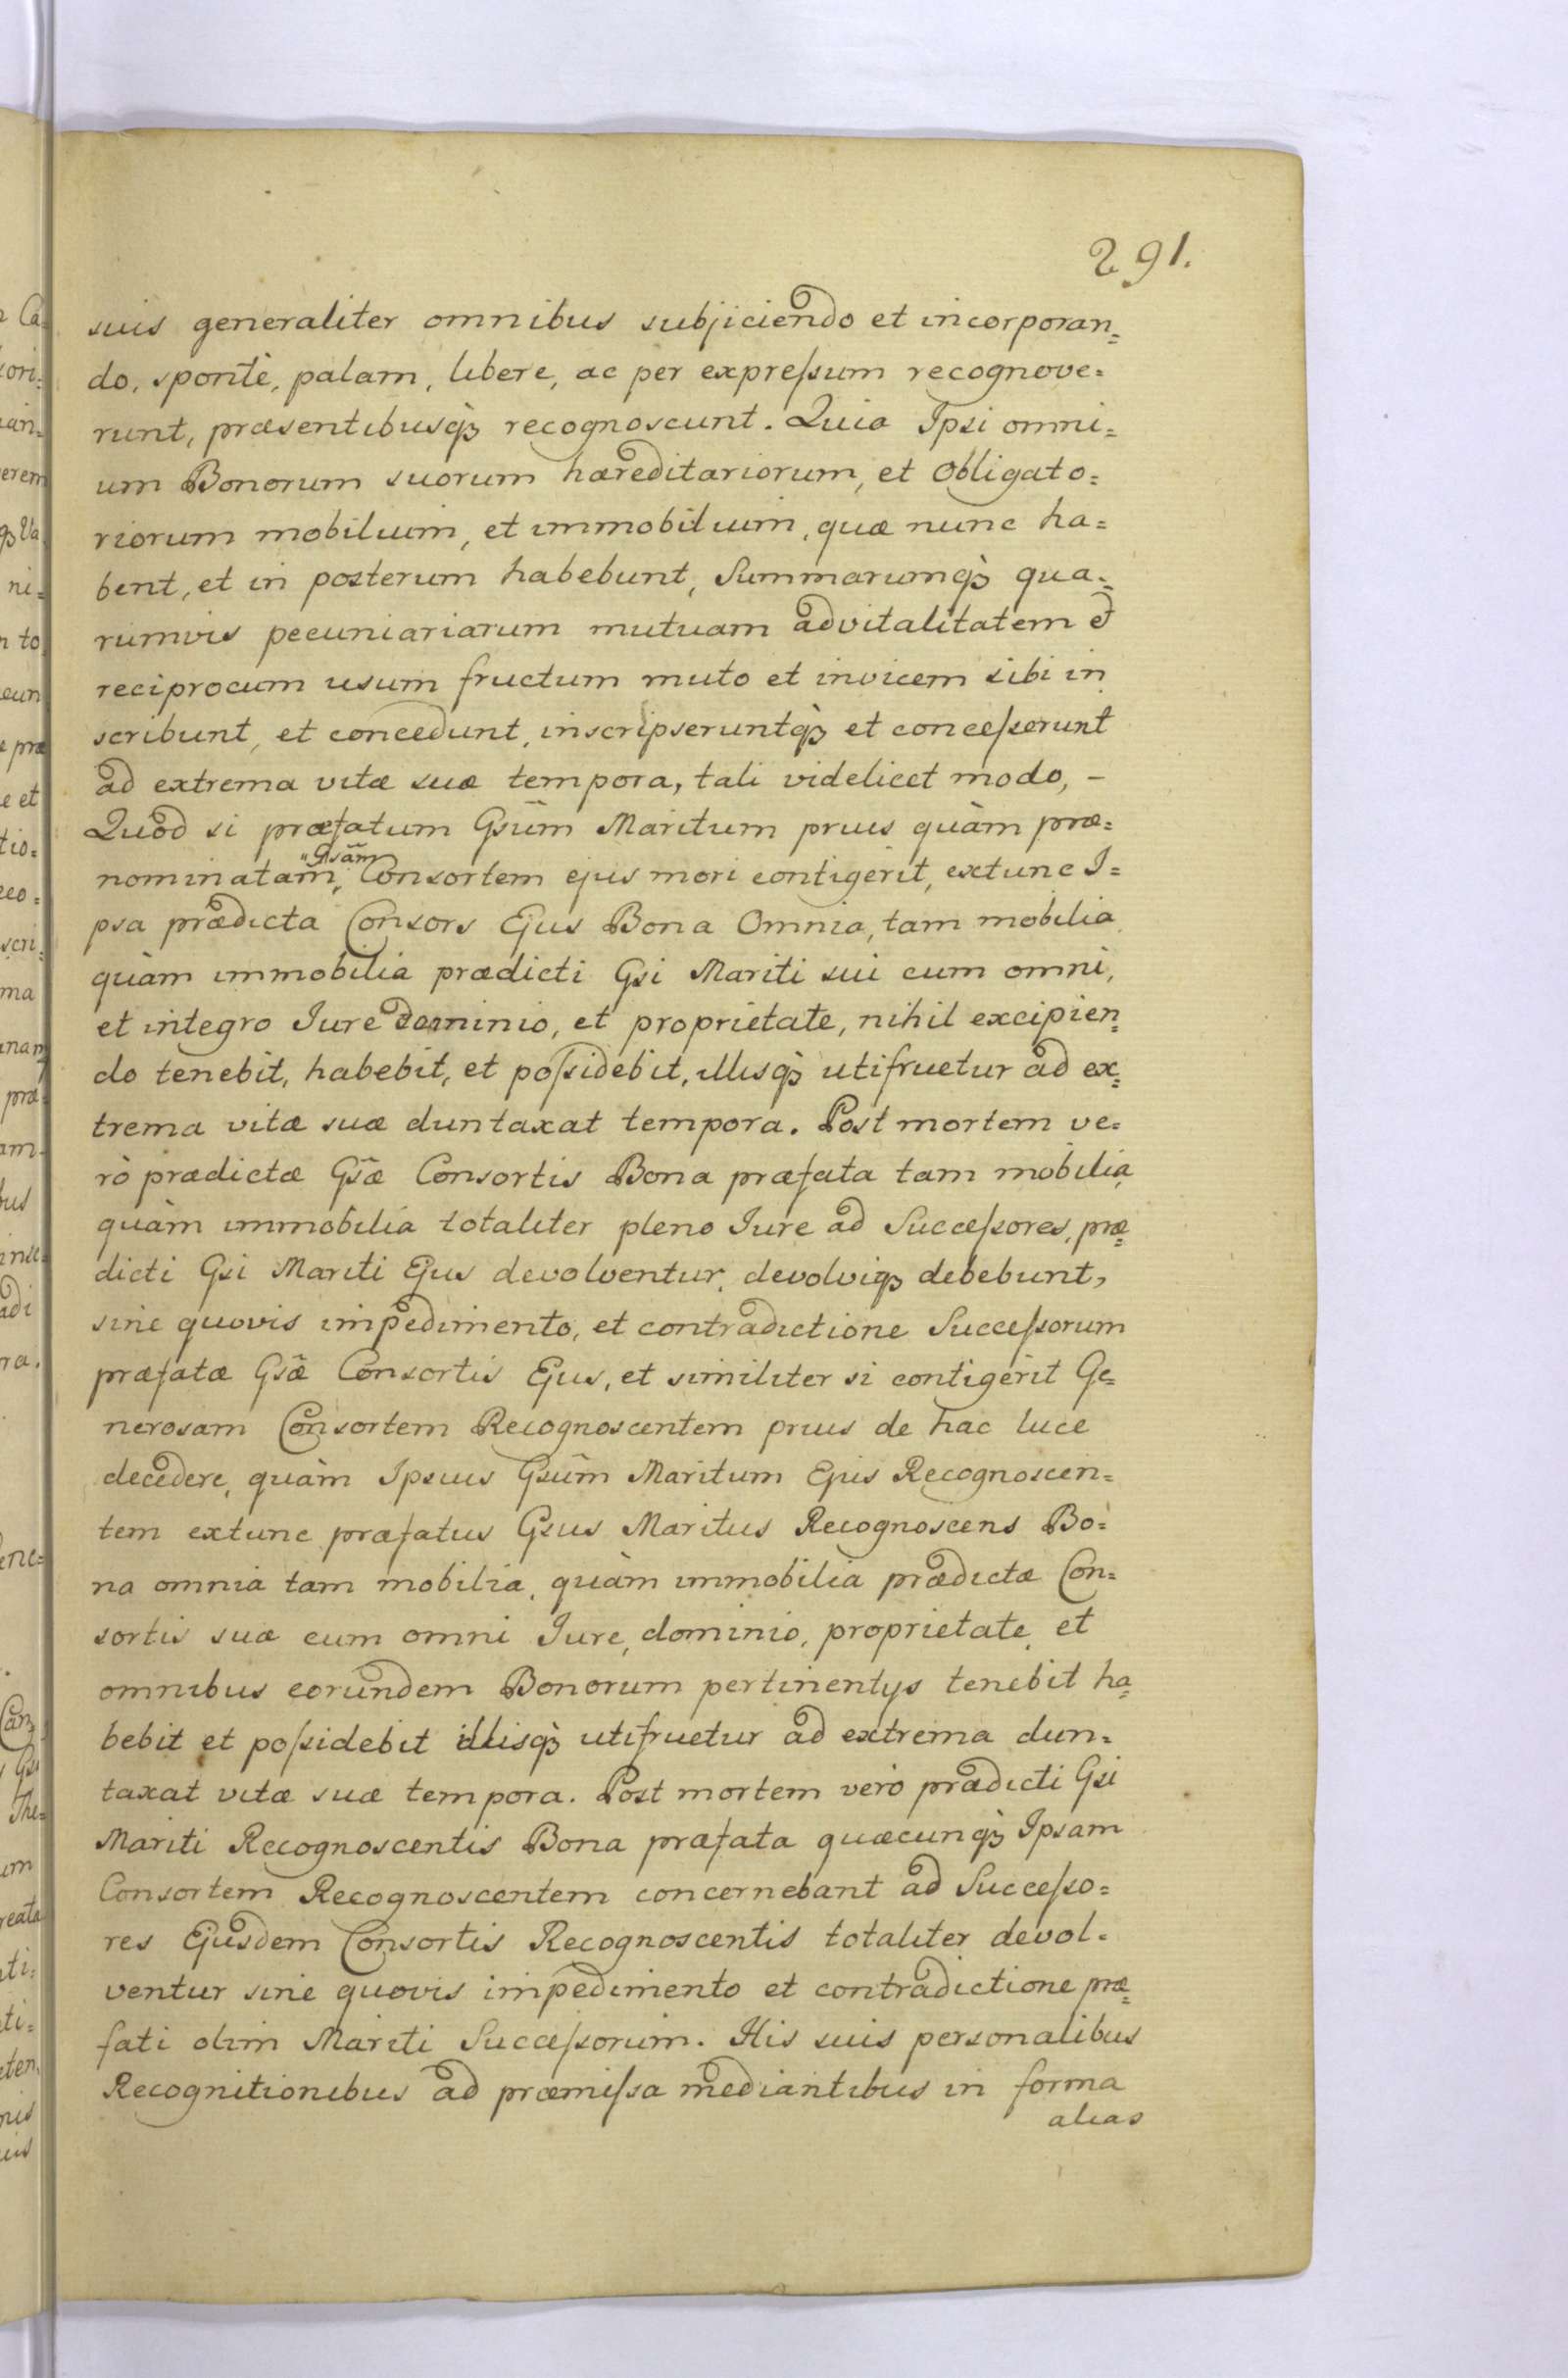 291.
suis generaliter omnibus subjiciendo et incorporan=
do, spontè, palam, libere, ac per expreſsum recognove=
runt, præsentibusq̃ recognoscunt. Quia Ipsi omni=
um Bonorum suorum hæreditariorum, et Obligato=
riorum mobilium, et immobilium, quæ nunc ha=
bent, et in posterum habebunt, Summarumq̃ qua=
rumvis pecuniariarum mutuam advitalitatem et
reciprocum usum fructum muto et invicem sibi in
scribunt, et concedunt, inscripseruntq̃ et conceſserunt
ad extrema vitæ suæ tempora, tali videlicet modo, -
Quod si præfatum Gsũm Maritum prius quàm præ=
nominatam, "Gsãm Consortem ejus mori contigerit, extunc I=
psa prædicta Consors Ejus Bona Omnia, tam mobilia
quàm immobilia prædicti Gsi Mariti sui cum omni,
et integro Jure dominio, et proprietate, nihil excipien=
do tenebit, habebit, et poſsidebit, illisq̃ utifruetur ad ex=
trema vitæ suæ duntaxat tempora. Post mortem ve=
rò prædictæ Gsæ̃ Consortis Bona præfata tam mobilia
quàm immobilia totaliter pleno Jure ad Succeſsores, præ=
dicti Gsi Mariti Ejus devolventur, devolviq̃ debebunt,
sine quovis impedimento, et contradictione Succeſsorum
præfatæ Gsæ̃ Consortis Ejus, et similiter si contigerit Ge=
nerosam Consortem Recognoscentem prius de hac luce
decedere, quàm Ipsius Gsũm Maritum Ejus Recognoscen=
tem extunc præfatus Gsus Maritus Recognoscens Bo=
na omnia tam mobilia, quàm immobilia prædictæ Con=
sortis suæ cum omni Jure, dominio, proprietate, et
omnibus eorundem Bonorum pertinentÿs tenebit ha=
bebit et poſsidebit illisq̃ utifruetur ad extrema dun=
taxat vitæ suæ tempora. Post mortem verò prædicti Gsi
Mariti Recognoscentis Bona præfata quæcunq̃ Ipsam
Consortem Recognoscentem concernebant ad Succeſso=
res Ejusdem Consortis Recognoscentis totaliter devol=
ventur sine quovis impedimento et contradictione præ=
fati olim Mariti Succeſsorum. His suis personalibus
Recognitionibus ad præmiſsa mediantibus in forma
alias